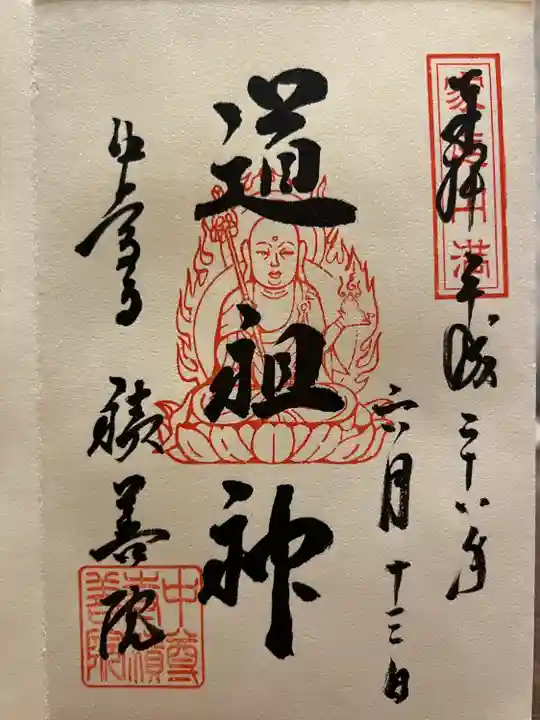 家庭円満
奉拝 平成二十八年
六月十三日
道祖神
中尊寺 積善院
中尊
寺積
善院